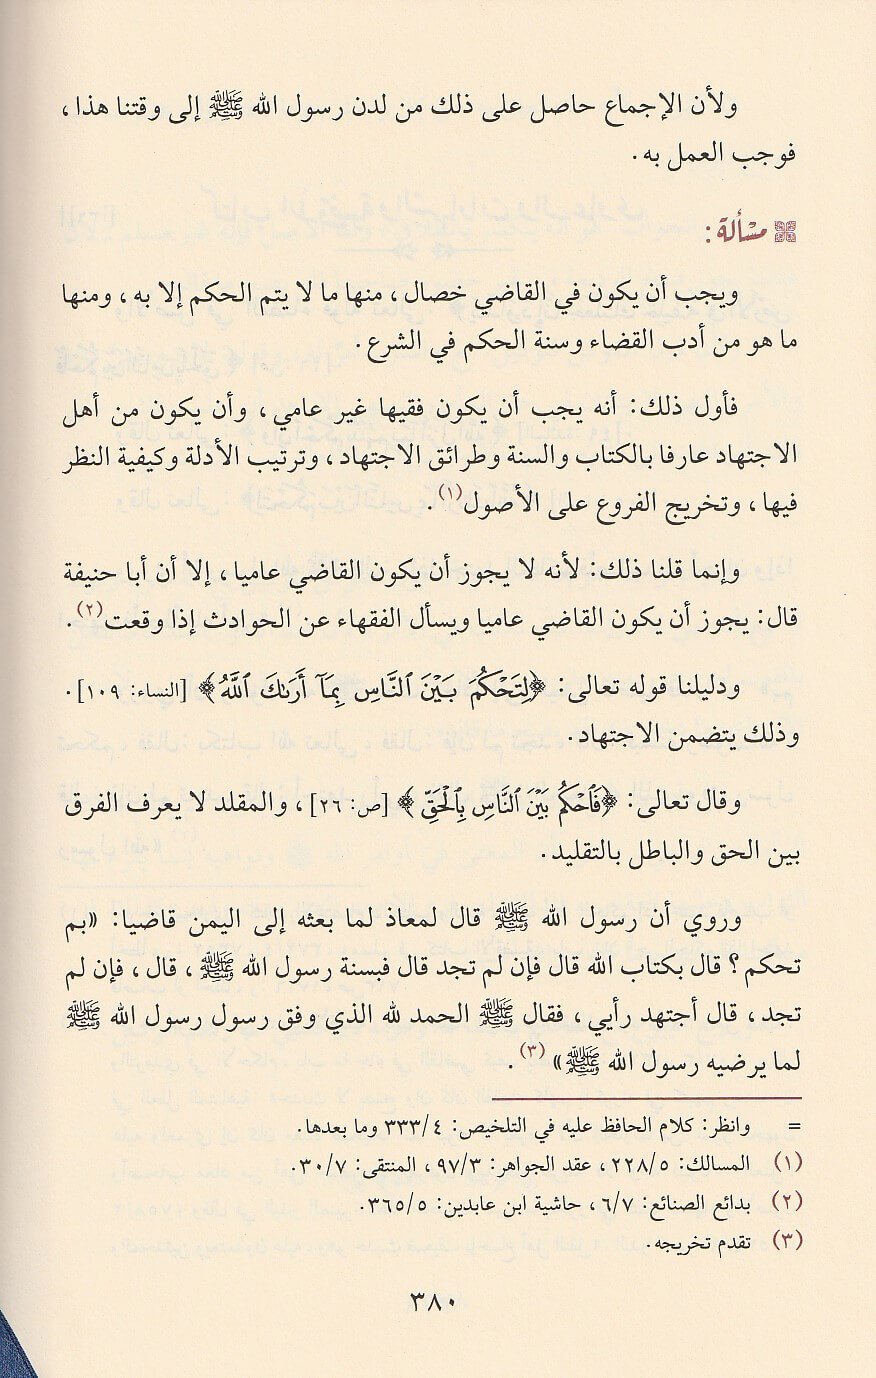 ولأن الإجماع حاصل على ذلك من لدن رسول الله ﷺ إلى وقتنا هذا،
فوجب العمل به.
مسألة:
ويجب أن يكون في القاضي خصال، منها ما لا يتم الحكم إلا به، ومنها
ما هو من أدب القضاء وسنة الحكم في الشرع.
فأول ذلك: أنه يجب أن يكون فقيها غير عامي، وأن يكون من أهل
الاجتهاد عارفا بالكتاب والسنة وطرائق الاجتهاد، وترتيب الأدلة وكيفية النظر
فيها، وتخريج الفروع على الأصول(١).
وإنما قلنا ذلك: لأنه لا يجوز أن يكون القاضي عاميا، إلا أن أبا حنيفة
قال: يجوز أن يكون القاضي عاميا ويسأل الفقهاء عن الحوادث إذا وقعت(٢).
ودليلنا قوله تعالى: ﴿لِتَحْكُمَ بَيْنَ ٱلنَّاسِ بِمَآ أَرَىٰكَ ٱللَّهُ﴾ [النساء: ١٠٩].
وذلك يتضمن الاجتهاد.
وقال تعالى: ﴿فَٱحْكُم بَيْنَ ٱلنَّاسِ بِٱلْحَقِّ﴾ [ص: ٢٦]، والمقلد لا يعرف الفرق
بين الحق والباطل بالتقليد.
وروي أن رسول الله ﷺ قال لمعاذ لما بعثه إلى اليمن قاضيا: «بم
تحكم؟ قال بكتاب الله قال فإن لم تجد قال فبسنة رسول الله ﷺ، قال، فإن لم
تجد، قال أجتهد رأيي، فقال ﷺ الحمد لله الذي وفق رسول رسول الله ﷺ
لما يرضيه رسول الله ﷺ»(٣).
= وانظر: كلام الحافظ عليه في التلخيص: ٣٣٣/٤ وما بعدها.
(١) المسالك: ٢٢٨/٥، عقد الجواهر: ٩٧/٣، المنتقى: ٣٠/٧.
(٢) بدائع الصنائع: ٦/٧، حاشية ابن عابدين: ٣٦٥/٥.
(٣) تقدم تخريجه.
٣٨٠